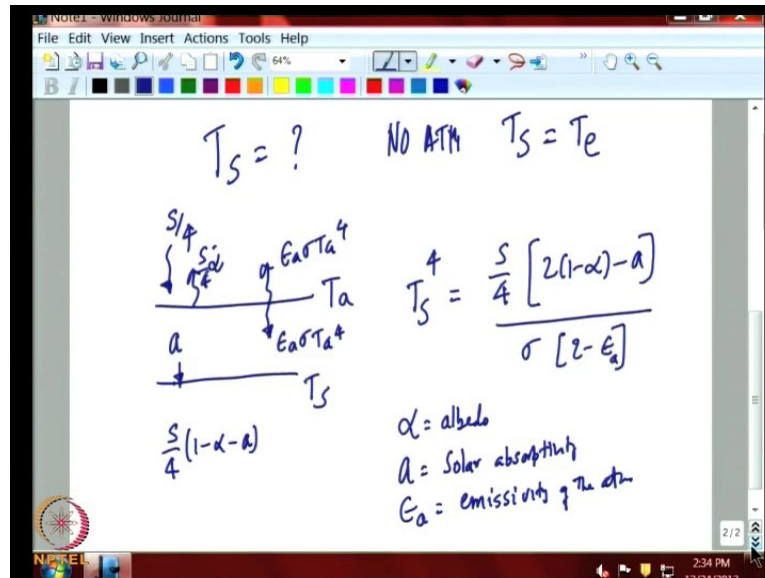 Note1 - Windows Journal
File Edit View Insert Actions Tools Help
64%
B I
T_S = ? NO ATM T_S = T_e
S/4
S/4 α
ϵ_a σ T_a^4
T_a
a
ϵ_a σ T_a^4
T_S
S/4 (1-α-a)
T_S^4 = S/4 [2(1-α)-a] / σ [2-ϵ_a]
α = albedo
a = Solar absorptivity
ϵ_a = emissivity of the atm
2/2
NPTEL
2:34 PM